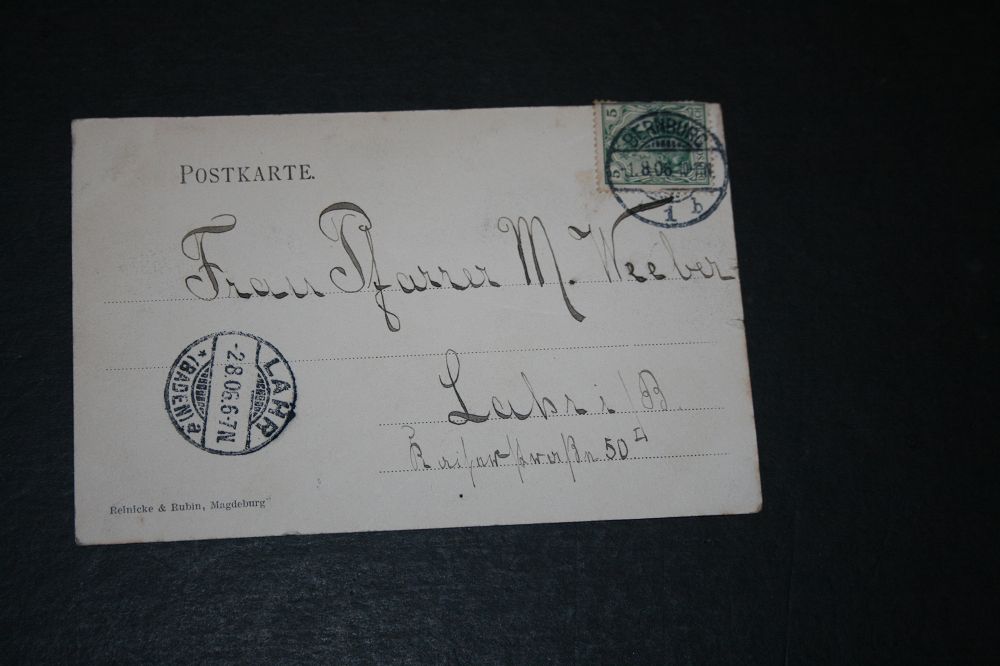 POSTKARTE.
5
BERNBURG
1.8.06 10-11N
1 b
Frau Pfarrer M. Weeber
LAHR
-2.8.06.6-7N
* (BADEN) a
Lahr i/B.
Kaiserstraße 50
Reinicke & Rubin, Magdeburg